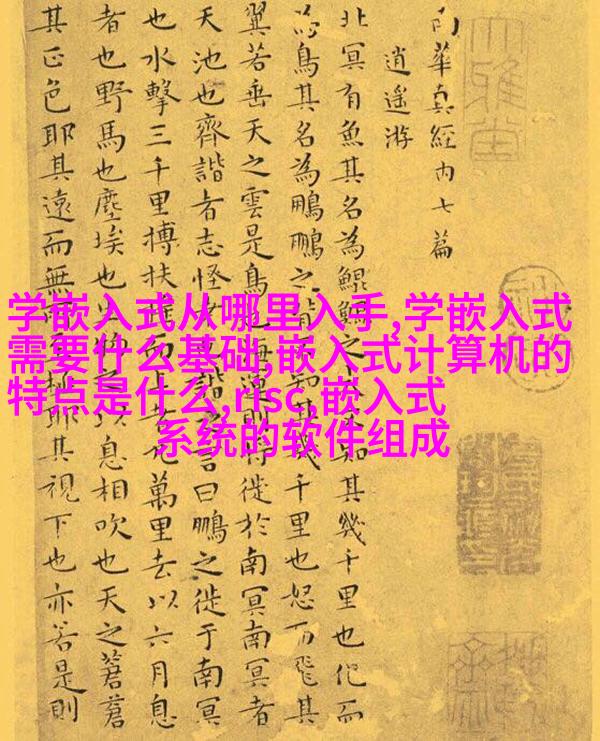 南華真經内七篇
逍遙游
北冥有魚其名為鯤鯤之大不知其幾千里也化而
為鳥其名為鵬鵬之背不知其幾千里也怒而飛其
翼若垂天之雲是鳥也海運則將徙於南冥南冥者
天池也齊諧者志怪者也諧之言曰鵬之徙于南冥
也水擊三千里搏扶搖而上者九萬里去以六月息
者也野馬也塵埃也生物之以息相吹也天之蒼蒼
其正色耶其遠而無所至極耶其視下也亦若是則
学嵌入式从哪里入手,学嵌入式
需要什么基础,嵌入式计算机的
特点是什么,risc,嵌入式
系统的软件组成